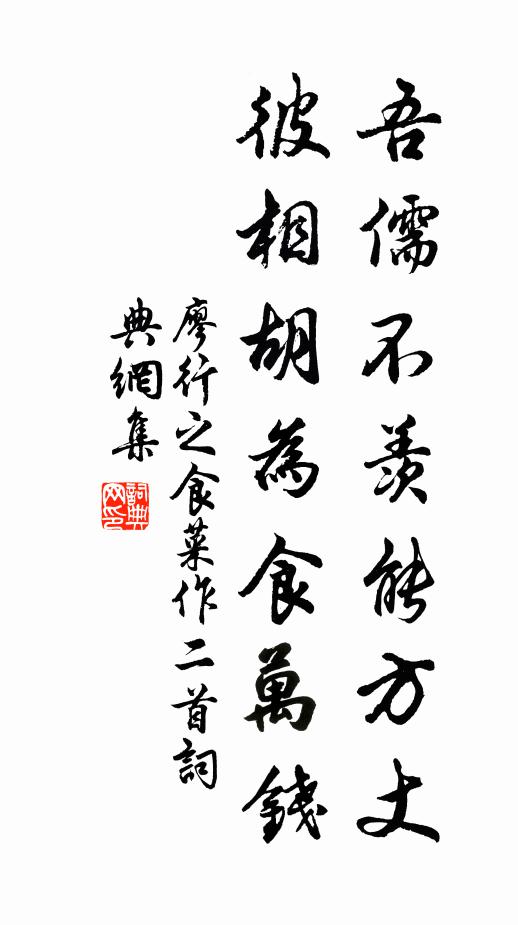 吾儒不羨能方丈
彼相胡為食萬錢
廖行之食菜作二首詞
典網集
詞典網印